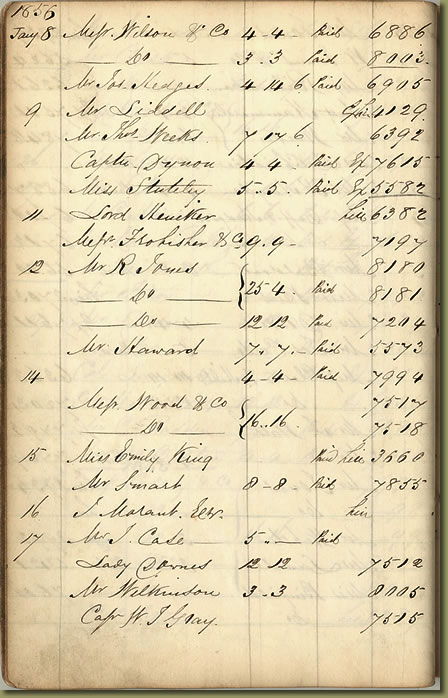 1856
Jany 8 Messrs. Wilson & Co 4 - 4 - Paid 6886
Do 3 . 3 Paid 8003.
Mr Jos Hedges 4 14 6 Paid 6905
9 Mr Liddell 4129.
Mr Thos Weeks 7 17 6 6392
Captn Dynon 4 4 Paid Ex 7615
Miss Stateley 5 .. 5 . Paid Ex 5582
11 Lord Heniker 6382
Messrs Frobisher & Co 9 .. 9 - 7197
12 Mr R Jones 8180
Do 25 4 . Paid 8181
Do 12 12 Paid 7204
Mr Haward 7 .. 7 .. — Paid 5573
14 4 - 4 Paid 7994
Messrs Wood & Co 7517
Do 16 .. 16 .. 7518
15 Miss Emily King Paid 3660
Mr Smart 8 - 8 Paid 7855
16 J Marant. Esqr.
17 Mr J. Case 5 .. — Paid
Lady Downes 12 .. 12 7512
Mr Wilkinson 3 .. 3 8005
Capt W J Gray. 7515